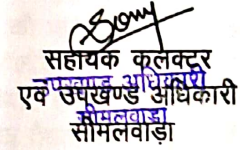 सहायक कलक्टर
उपखण्ड अधिकारी
एवं उपखण्ड अधिकारी
सीमलवाड़ा
सीमलवाड़ा